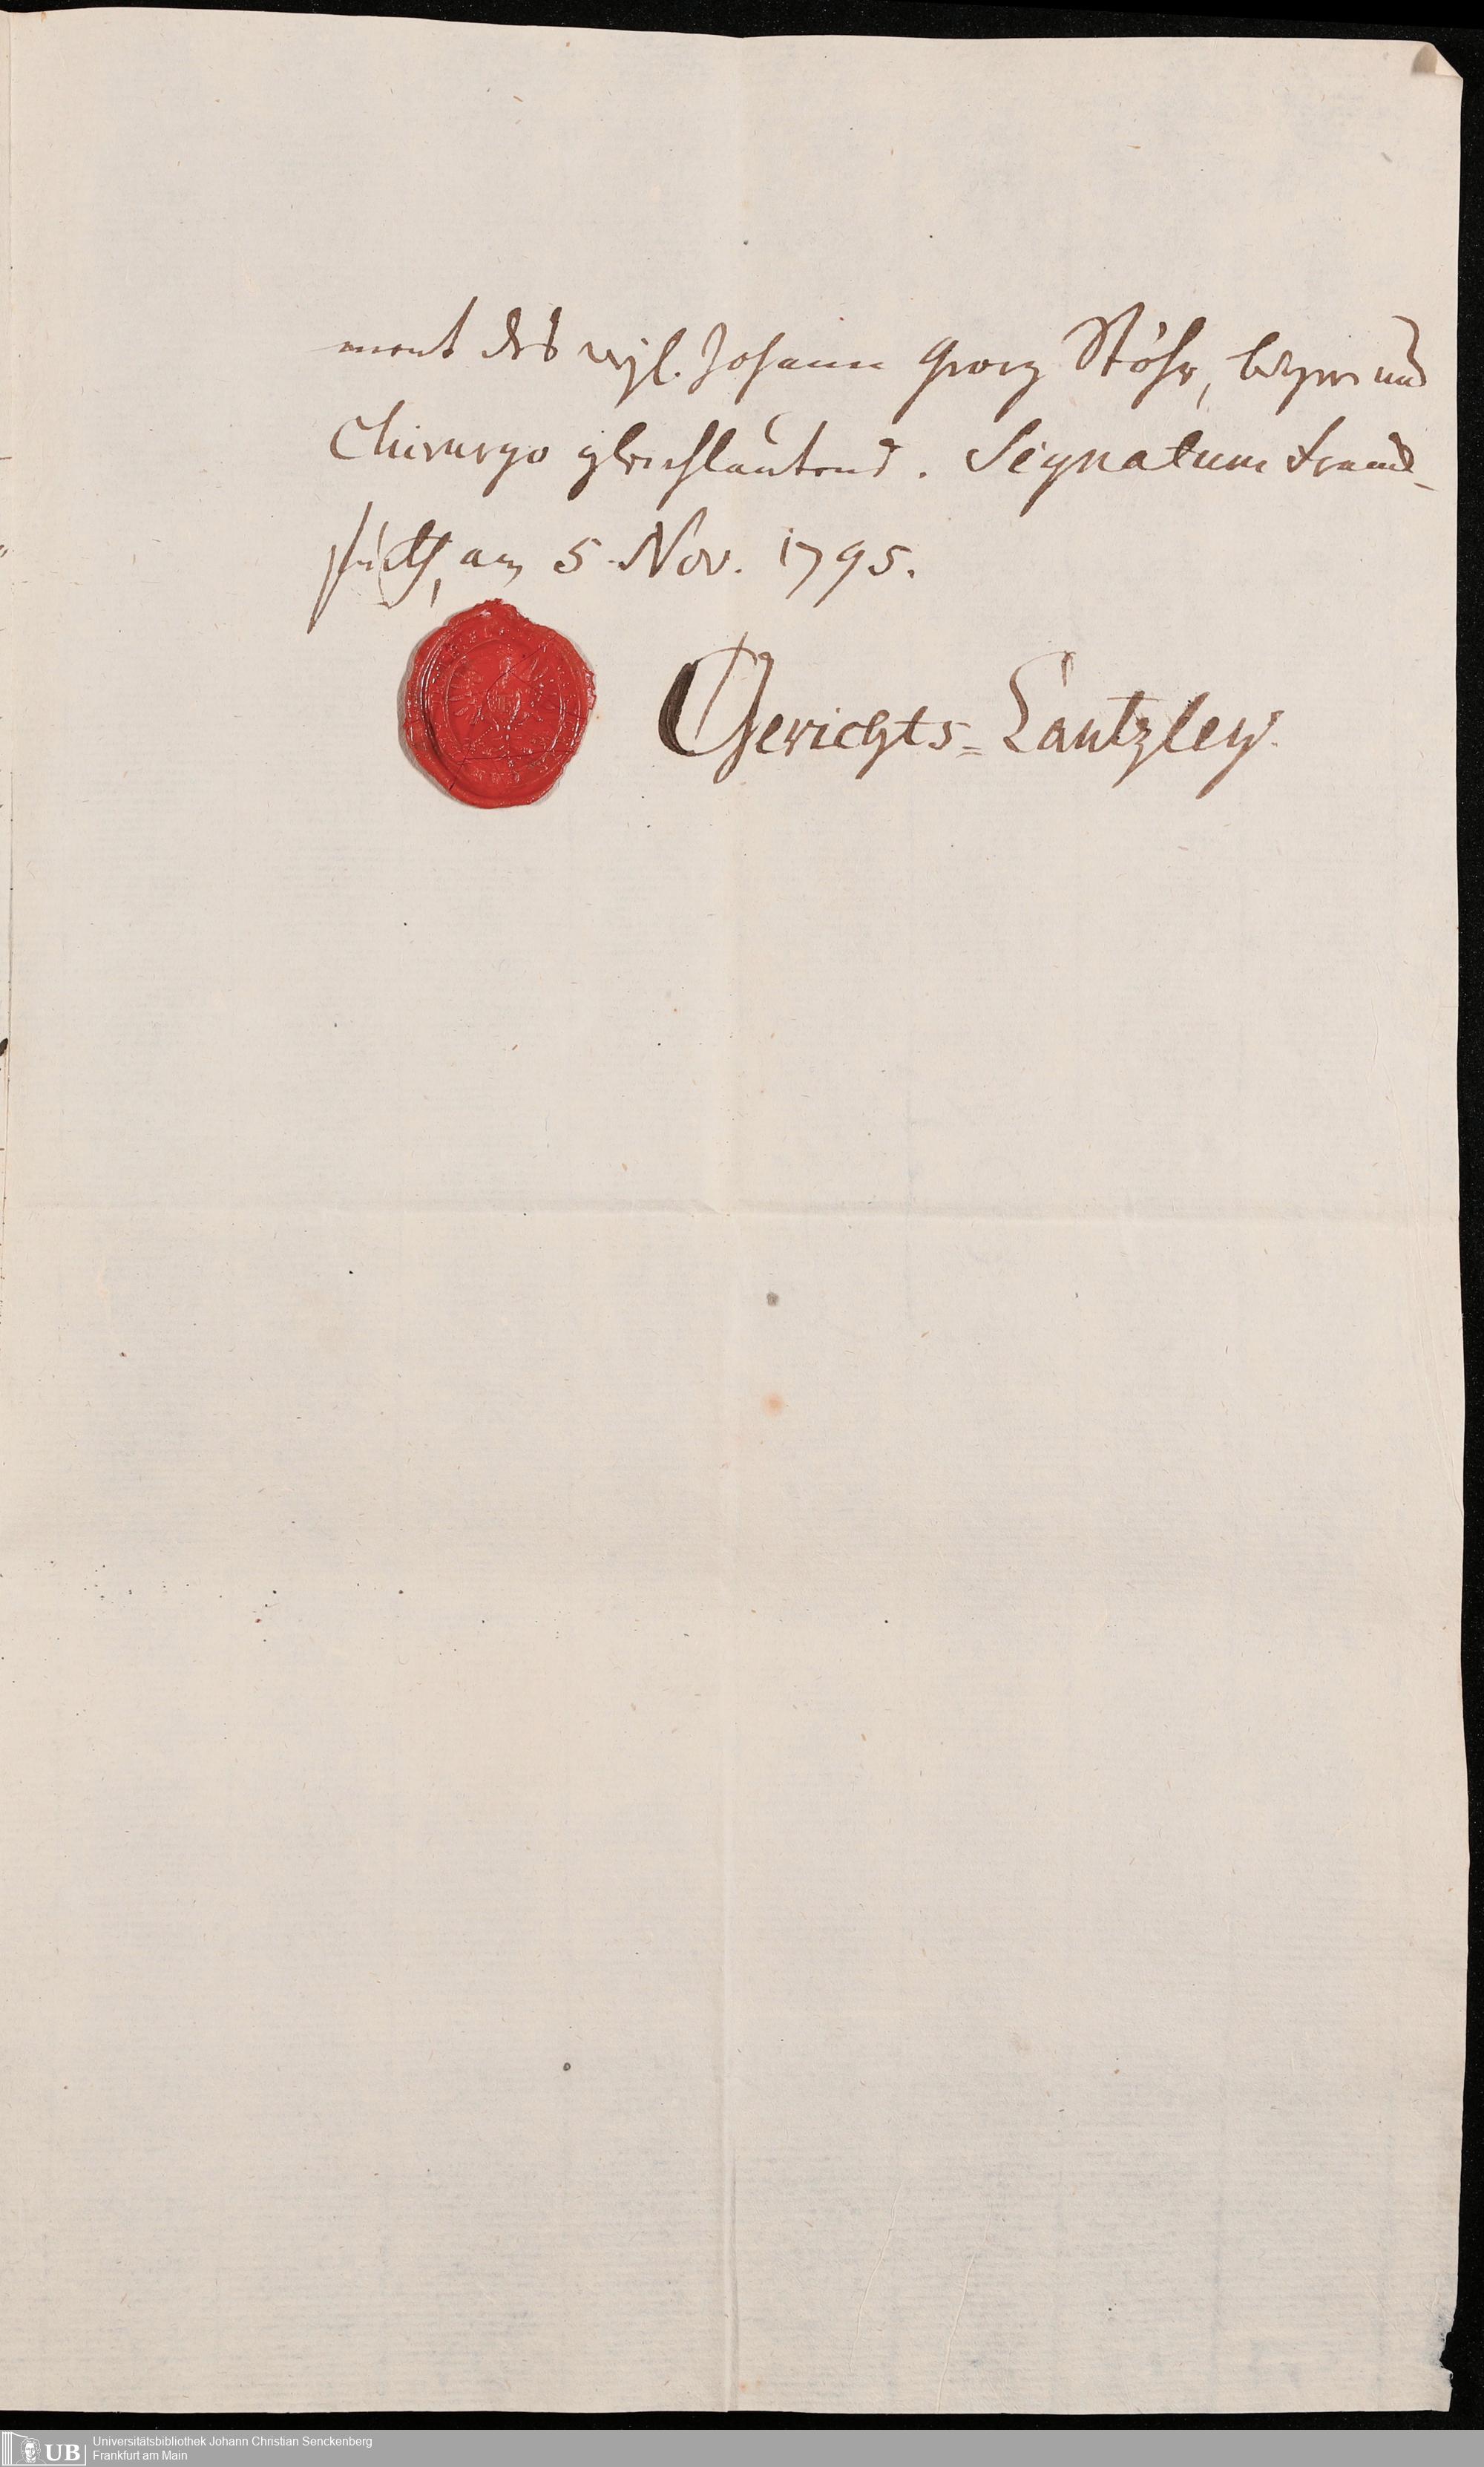 ment des wyl. Johann Georg Stöhr, burgern und
Chirurgo gleichlautend. Signatum Franck-
furth, am 5 Nov. 1795.
Gerichts=Cantzley.
UB
Universitätsbibliothek Johann Christian Senckenberg
Frankfurt am Main